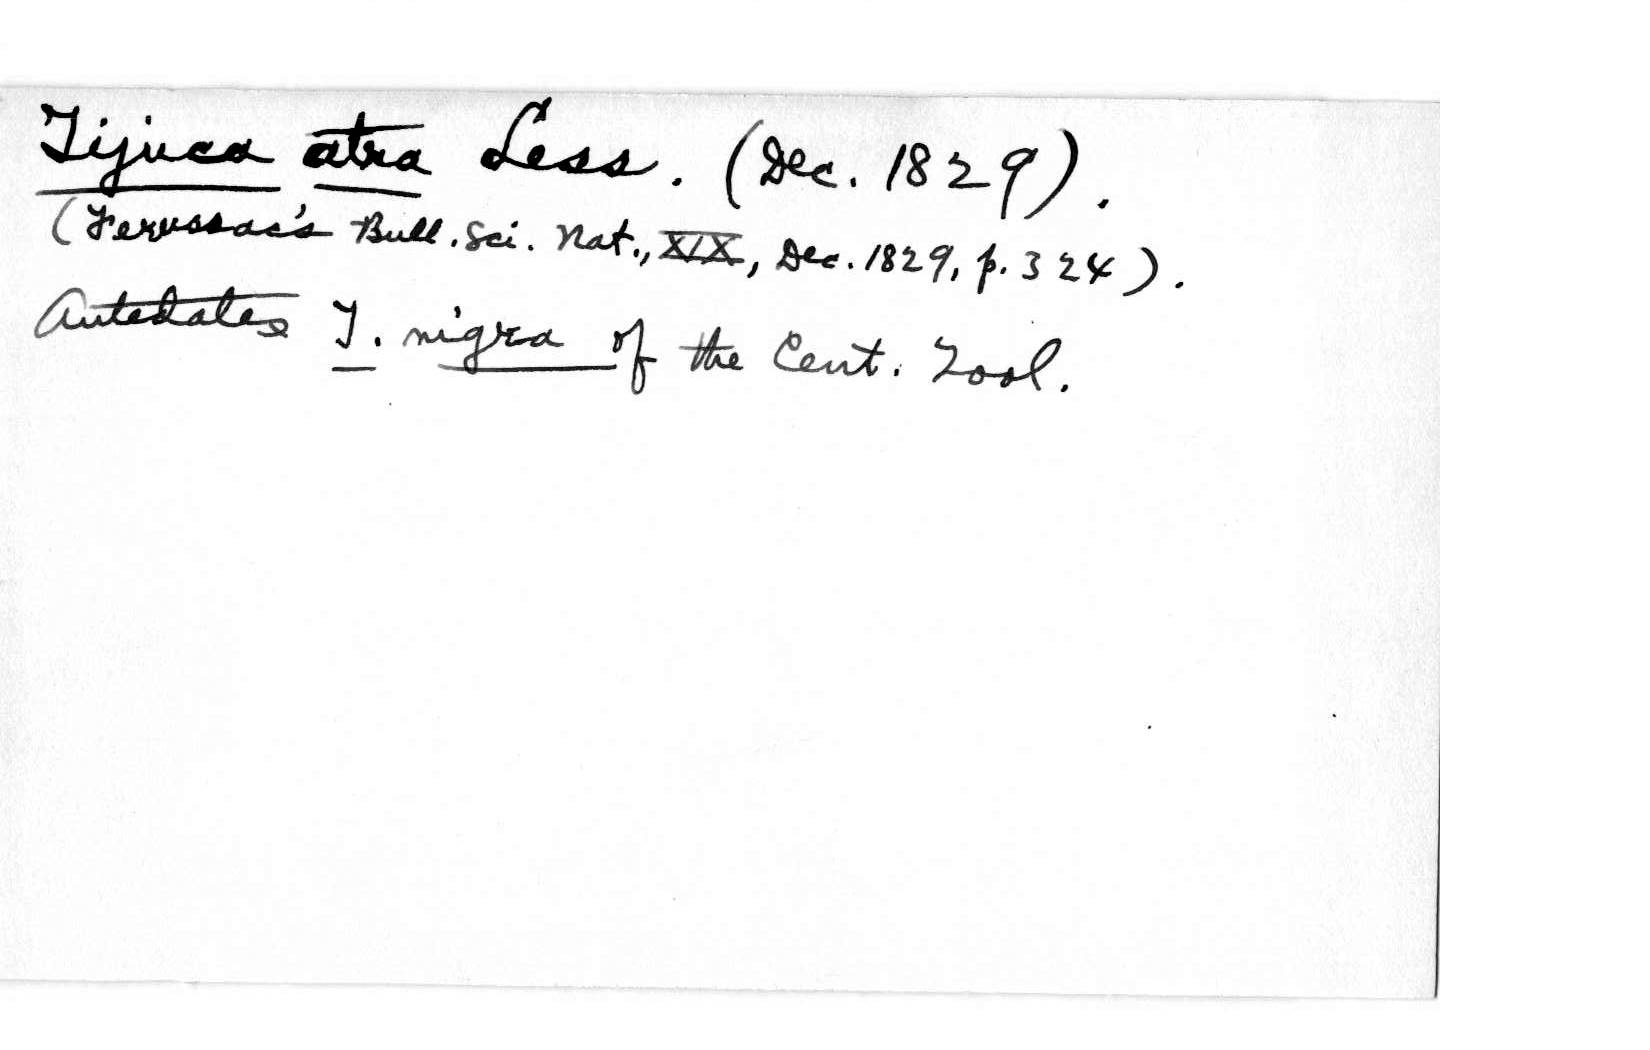 Tijuca atra Less. (Dec. 1829).
(Ferussac's Bull. Sci. Nat., XIX, Dec. 1829, p. 324).
Antedates T. nigra of the Cent. Zool.